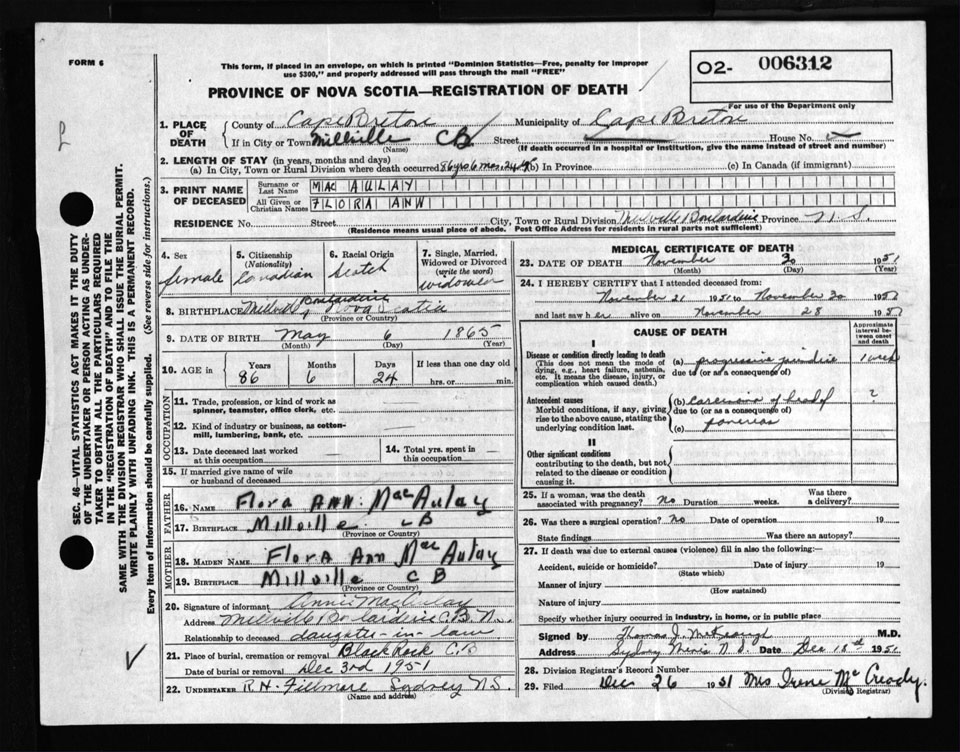 FORM 6
This form, if placed in an envelope, on which is printed "Dominion Statistics—Free, penalty for improper
use $300," and properly addressed will pass through the mail "FREE"
PROVINCE OF NOVA SCOTIA—REGISTRATION OF DEATH
02- 006312
For use of the Department only
1. PLACE OF DEATH
County of Cape Breton Municipality of Cape Breton
If in City or Town Millville CB Street House No.
(Name) (If death occurred in a hospital or institution, give the name instead of street and number)
2. LENGTH OF STAY (in years, months and days)
(a) In City, Town or Rural Division where death occurred 86 yrs 6 mos 24 (b) In Province (c) In Canada (if immigrant)
3. PRINT NAME OF DECEASED
Surname or Last Name MAC AULAY
All Given or Christian Names FLORA ANN
RESIDENCE No. Street City, Town or Rural Division Millville Boularderie Province N.S.
(Residence means usual place of abode. Post Office Address for residents in rural parts not sufficient)
4. Sex female
5. Citizenship (Nationality) Canadian
6. Racial Origin Scotch
7. Single, Married, Widowed or Divorced (write the word) widower
8. BIRTHPLACE Millville, Boularderie Nova Scotia
(Province or Country)
9. DATE OF BIRTH May 6 1865
(Month) (Day) (Year)
10. AGE in Years 86 Months 6 Days 24 If less than one day hrs. or min.
OCCUPATION
11. Trade, profession, or kind of work as spinner, teamster, office clerk, etc.
12. Kind of industry or business, as cotton-mill, lumbering, bank, etc.
13. Date deceased last worked at this occupation
14. Total yrs. spent in this occupation
15. If married give name of wife or husband of deceased
FATHER
16. NAME Flora ANN. MacAulay
17. BIRTHPLACE Millville CB
(Province or Country)
MOTHER
18. MAIDEN NAME Flora Ann MacAulay
19. BIRTHPLACE Millville CB
(Province or Country)
20. Signature of informant Annie MacAulay
Address Millville Boularderie C.B. N.S.
Relationship to deceased daughter-in-law
21. Place of burial, cremation or removal Black Rock C.B
Date of burial or removal Dec 3rd 1951
22. UNDERTAKER R.H. Fillmore Sydney N.S.
(Name and address)
MEDICAL CERTIFICATE OF DEATH
23. DATE OF DEATH November 30 1951
(Month) (Day) (Year)
24. I HEREBY CERTIFY that I attended deceased from:
November 21 1951 to November 30 1951
and last saw her alive on November 28 1951
CAUSE OF DEATH
Approximate interval between onset and death
I
Disease or condition directly leading to death
(This does not mean the mode of dying, e.g., heart failure, asthenia, etc. It means the disease, injury, or complication which caused death.)
(a) progressive jaundice 1 week
due to (or as a consequence of)
Antecedent causes
Morbid conditions, if any, giving rise to the above cause, stating the underlying condition last.
(b) carcinoma of head of ?
due to (or as a consequence of)
(c) pancreas
II
Other significant conditions
contributing to the death, but not related to the disease or condition causing it.
25. If a woman, was the death associated with pregnancy? No Duration weeks. Was there a delivery?
26. Was there a surgical operation? No Date of operation 19
State findings Was there an autopsy?
27. If death was due to external causes (violence) fill in also the following:—
Accident, suicide or homicide? Date of injury 19
(State which)
Manner of injury
(How sustained)
Nature of injury
Specify whether injury occurred in industry, in home, or in public place
Signed by Thomas J. McKeough M.D.
Address Sydney Mines N.S. Date Dec 18th 1951
28. Division Registrar's Record Number
29. Filed Dec 26 1951 Mrs Irene McCready.
(Division Registrar)
SEC. 46—VITAL STATISTICS ACT MAKES IT THE DUTY
OF THE UNDERTAKER OR PERSON ACTING AS UNDERTAKER
TO OBTAIN ALL THE PARTICULARS REQUIRED
IN THE "REGISTRATION OF DEATH" AND TO FILE THE
SAME WITH THE DIVISION REGISTRAR WHO SHALL ISSUE THE BURIAL PERMIT.
WRITE PLAINLY WITH UNFADING INK. THIS IS A PERMANENT RECORD.
Every item of Information should be carefully supplied. (See reverse side for instructions.)